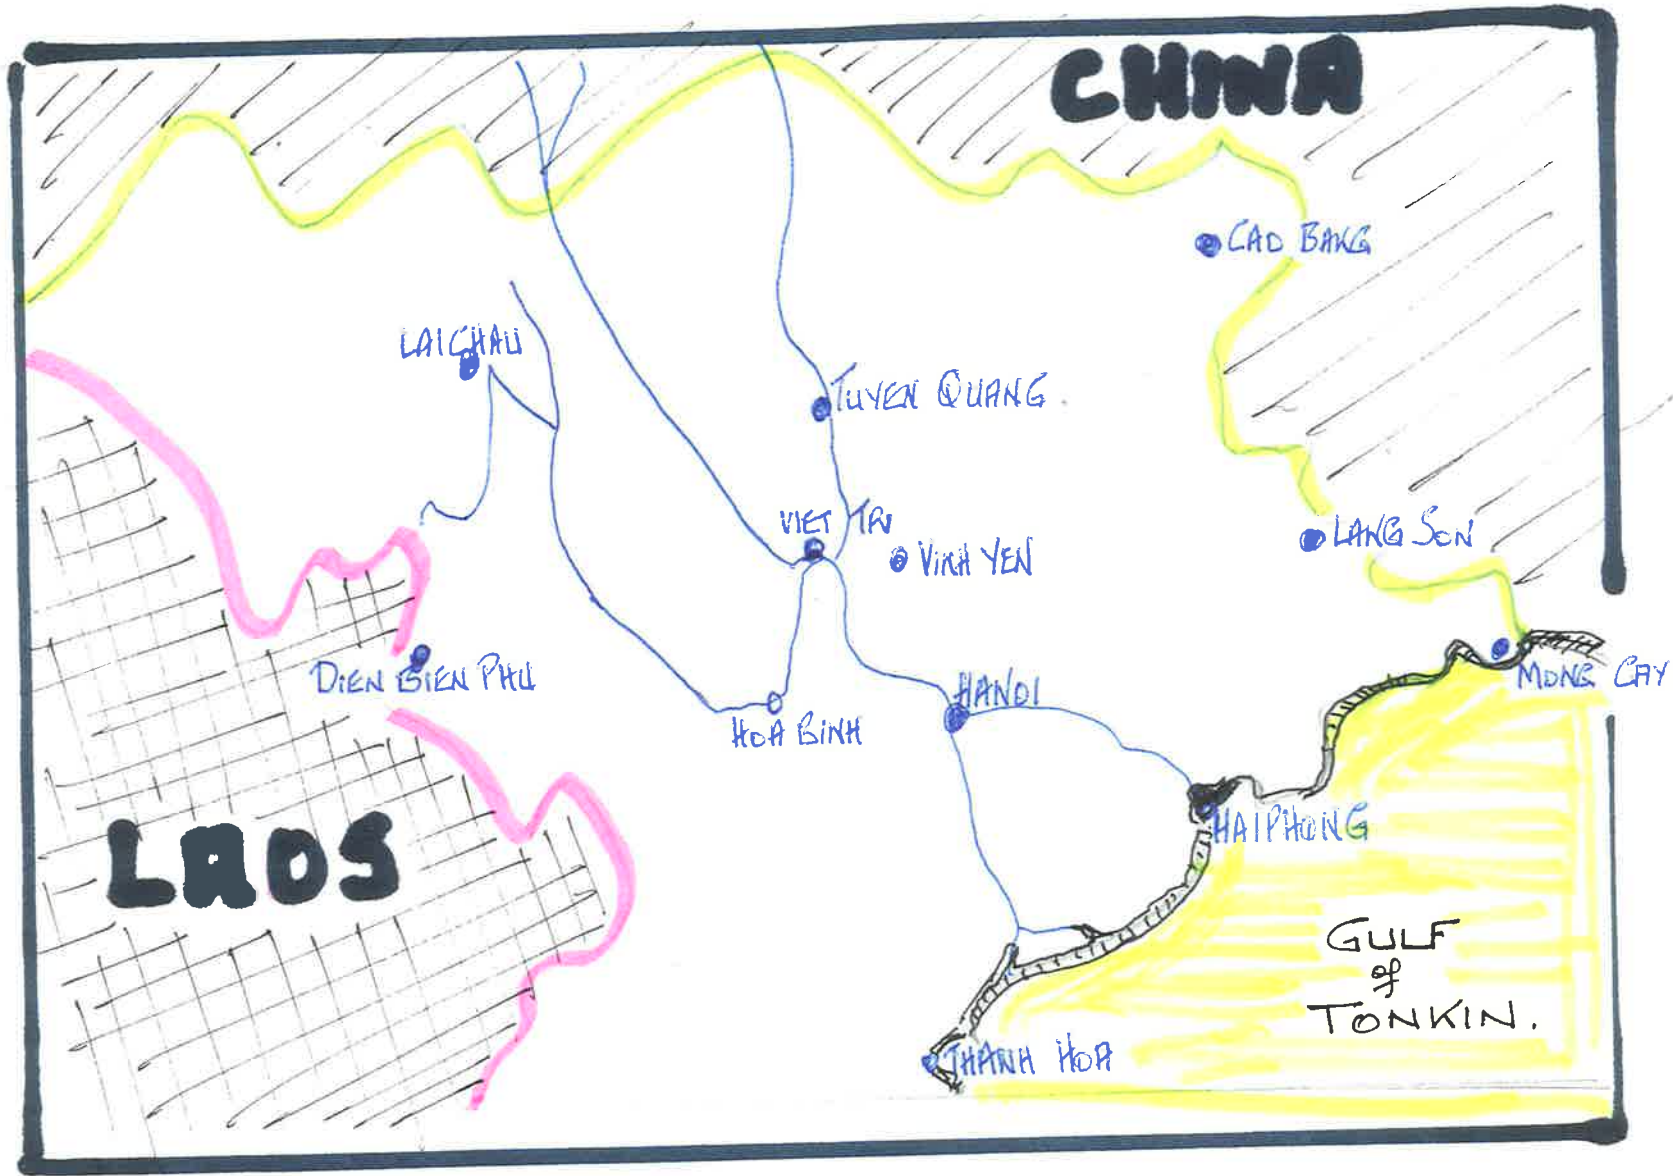 CHINA
CAO BANG
LAICHAU
TUYEN QUANG
VIET TRI
VINH YEN
LANG SON
DIEN BIEN PHU
HANOI
MONG CAY
HOA BINH
LAOS
HAIPHONG
GULF
of
TONKIN.
THANH HOA